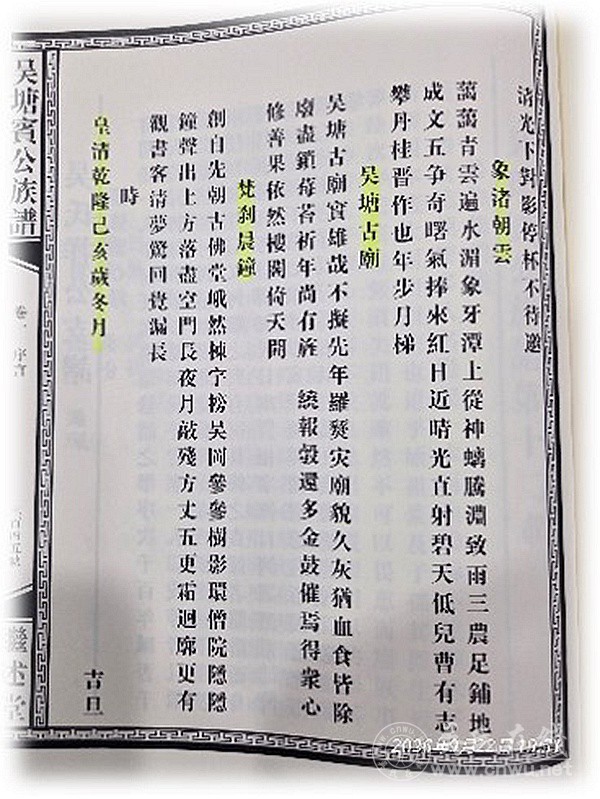 清光下對影停杯不待邀
象渚朝雲
藹藹青雲遍水湄象牙潭上從神螭騰淵致雨三農足鋪地
成文五爭奇曙氣捧來紅日近晴光直射碧天低兒曹有志
攀丹桂晋作也年步月梯
吴塘古廟
吴塘古廟實雄哉不擬先年羅燹灾廟貌久灰猶血食皆除
廢盡鎖莓苔祈年尚有旌 繞報穀還多金鼓催焉得衆心
修善果依然樓閣倚天開
梵刹晨鐘
創自先朝古佛堂峨然棟宇榜吴岡參參樹影環僧院隱隱
鐘聲出上方落盡空門長夜月敲殘方丈五更霜迴廊更有
觀書客清夢驚回覺漏長
時
皇清乾隆己亥歲冬月
吉旦
吴塘賓公族譜
卷一 序言
繼述堂
www.cnwu.net